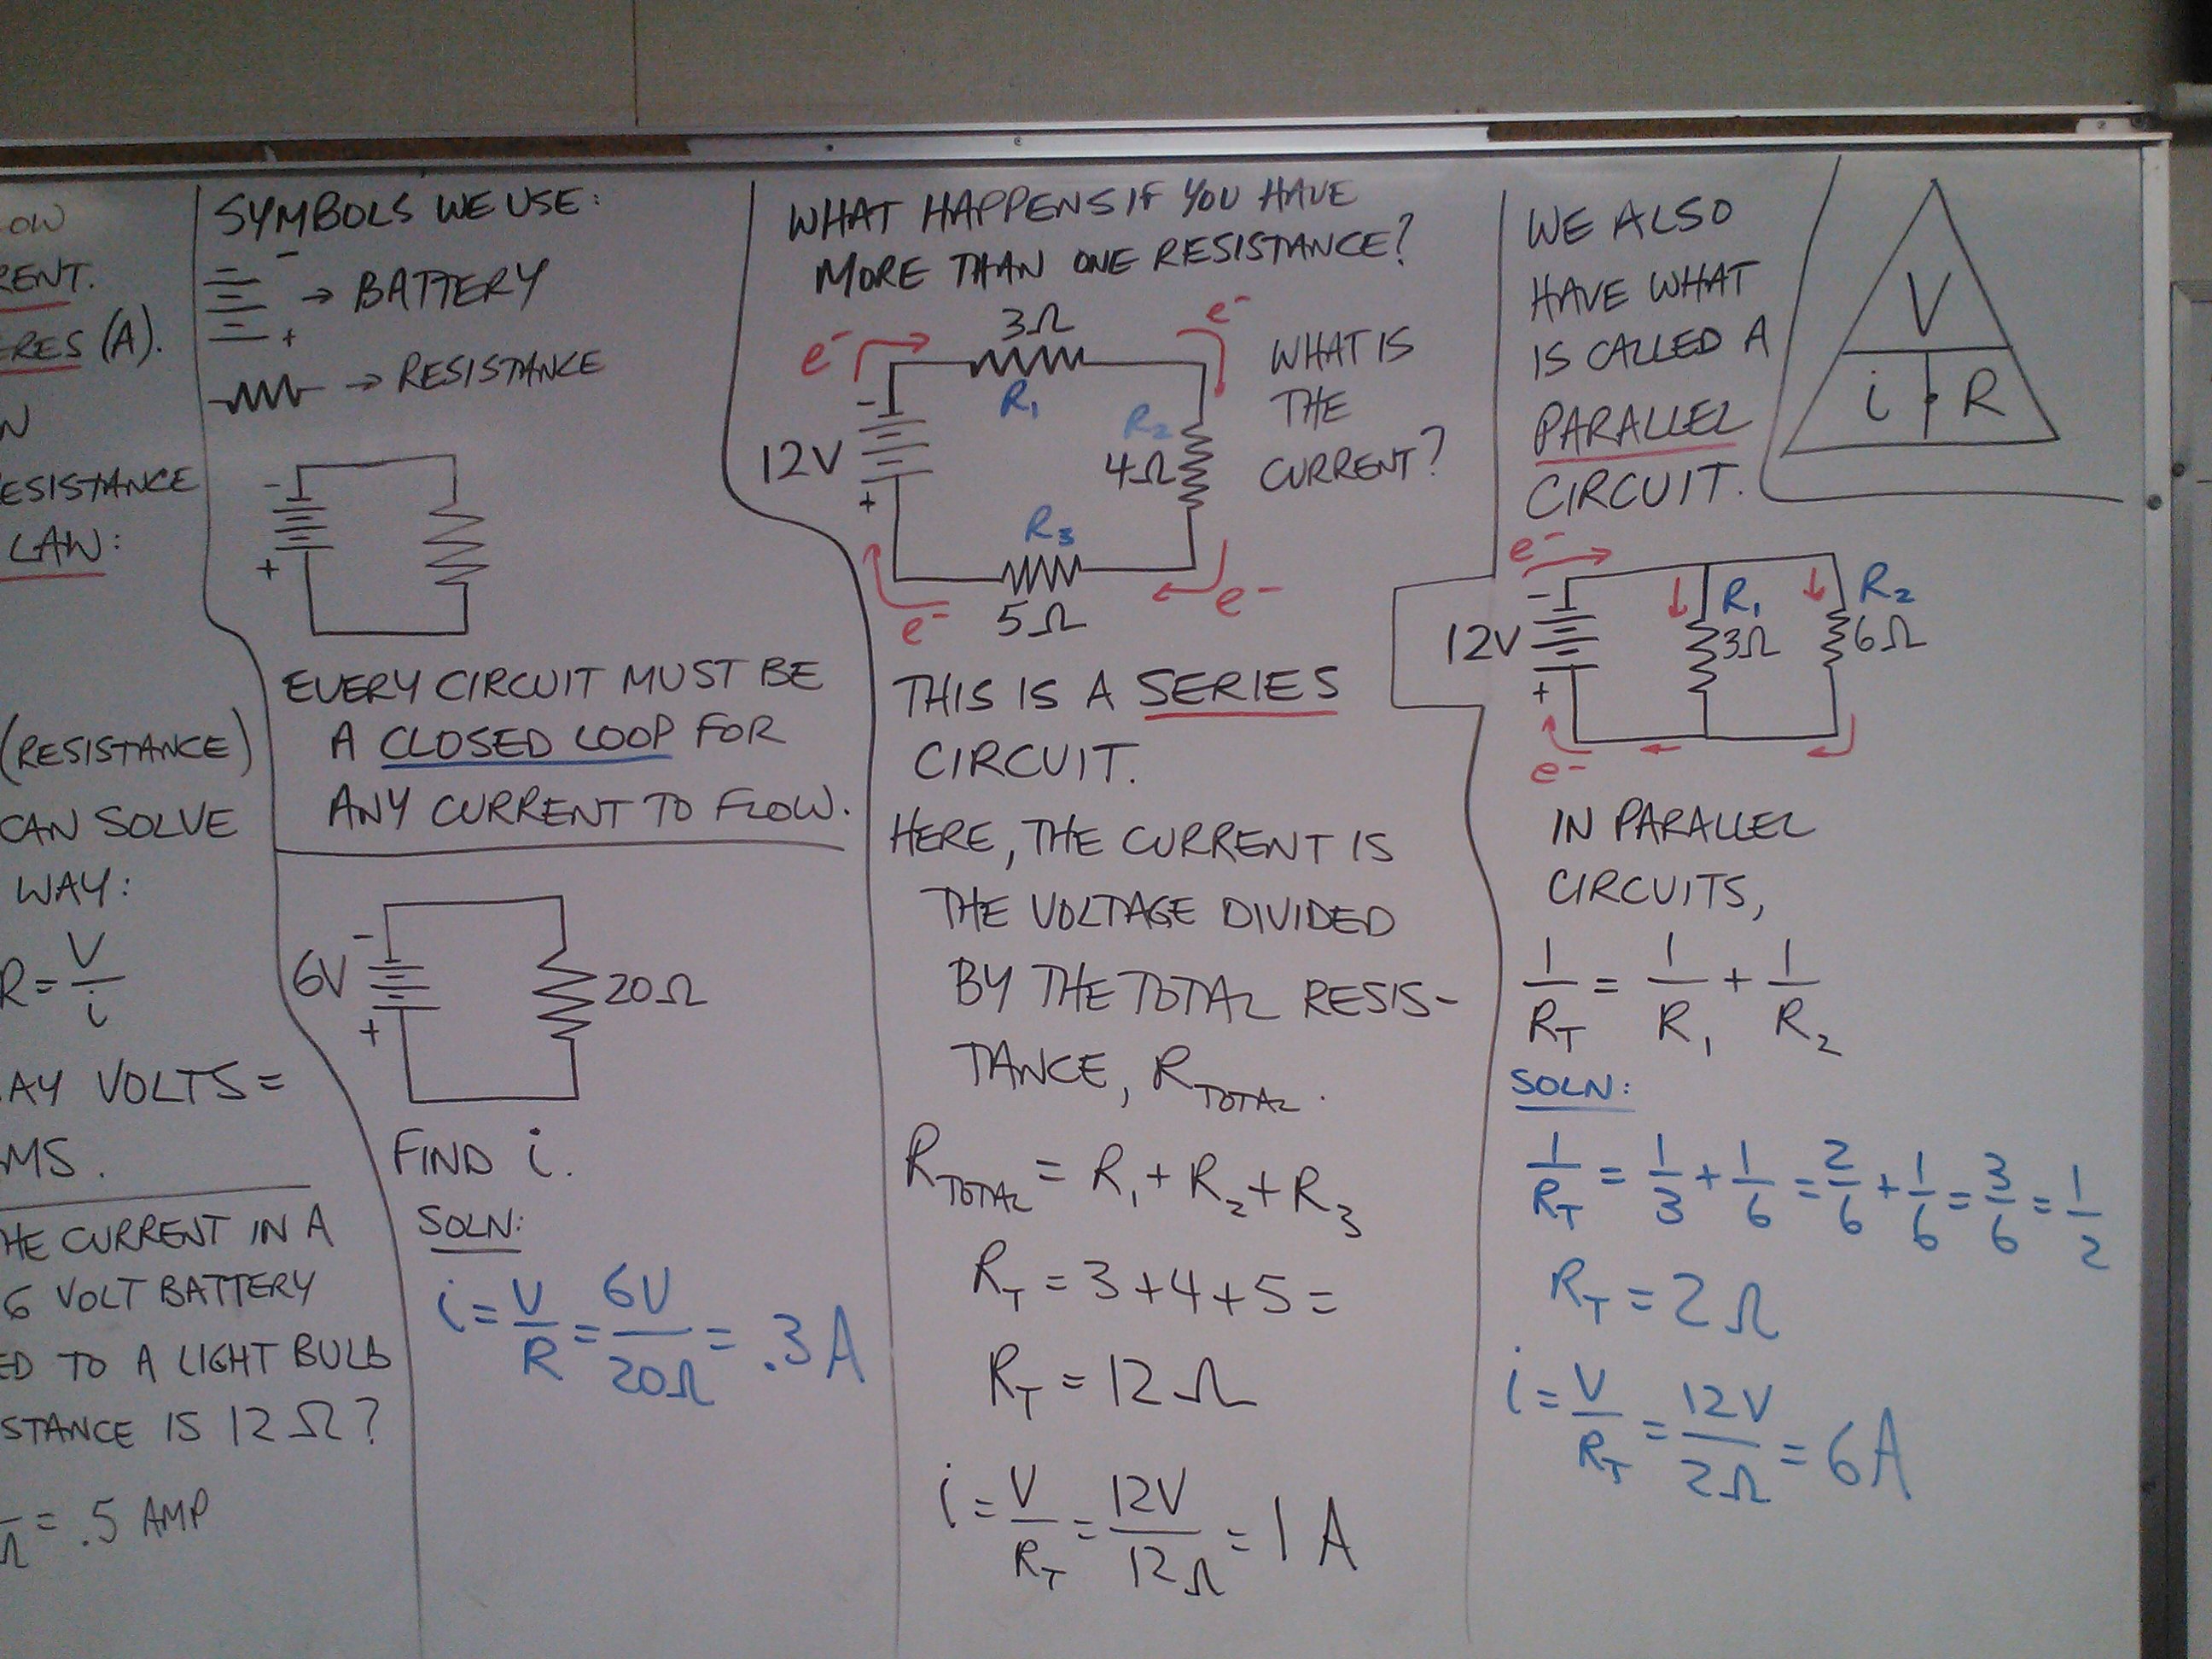 OW
RENT.
ERES (A).
N
ESISTANCE
LAW:
(RESISTANCE)
CAN SOLVE
WAY:
R = V/i
AY VOLTS =
MS.
HE CURRENT IN A
6 VOLT BATTERY
ED TO A LIGHT BULB
STANCE IS 12 Ω?
Ω = .5 AMP
SYMBOLS WE USE:
-
→ BATTERY
+
→ RESISTANCE
-
+
EVERY CIRCUIT MUST BE
A CLOSED LOOP FOR
ANY CURRENT TO FLOW.
-
6V 20Ω
+
FIND i.
SOLN:
i = V/R = 6V/20Ω = .3A
WHAT HAPPENS IF YOU HAVE
MORE THAN ONE RESISTANCE?
3Ω
e- e-
R1
WHAT IS
THE
CURRENT?
-
R2
12V 4Ω
+
R3
5Ω
e- e-
THIS IS A SERIES
CIRCUIT.
HERE, THE CURRENT IS
THE VOLTAGE DIVIDED
BY THE TOTAL RESIS-
TANCE, RTOTAL.
RTOTAL = R1 + R2 + R3
RT = 3 + 4 + 5 =
RT = 12 Ω
i = V/RT = 12V/12Ω = 1 A
WE ALSO
HAVE WHAT
IS CALLED A
PARALLEL
CIRCUIT.
V
i • R
e-
- R1 R2
12V 3Ω 6Ω
+
e-
IN PARALLEL
CIRCUITS,
1/RT = 1/R1 + 1/R2
SOLN:
1/RT = 1/3 + 1/6 = 2/6 + 1/6 = 3/6 = 1/2
RT = 2 Ω
i = V/RT = 12V/2Ω = 6A